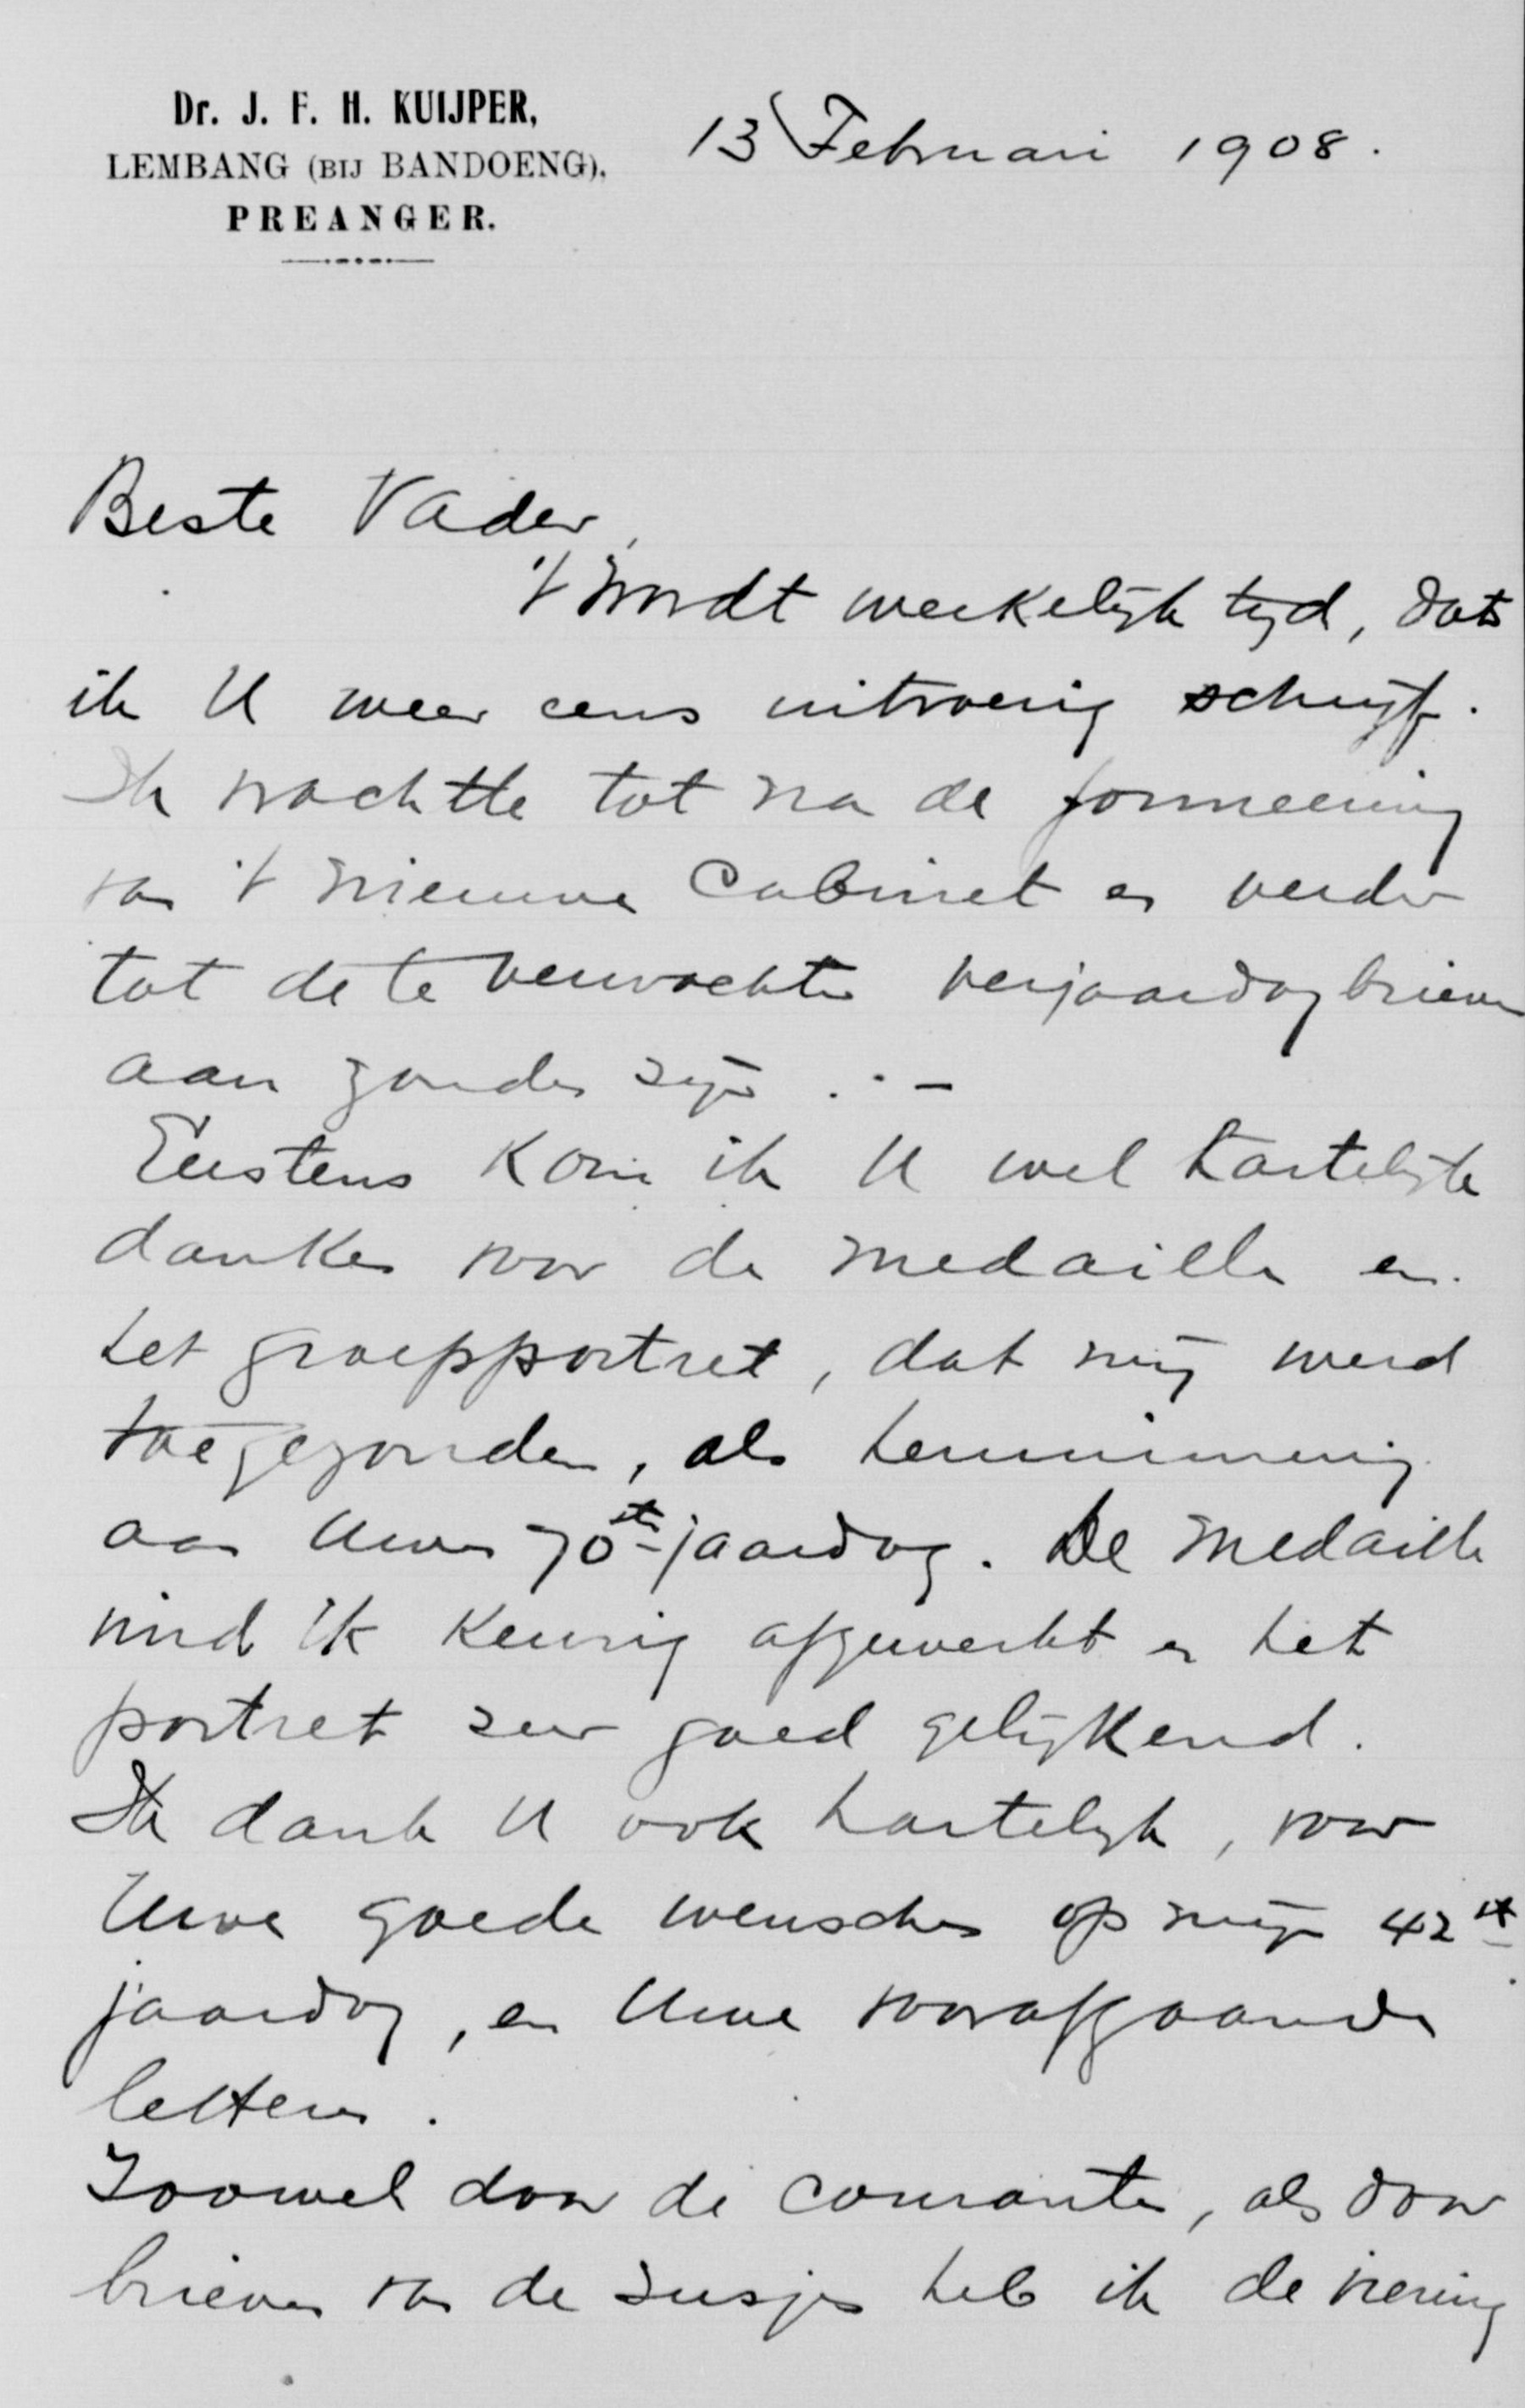 Dr. J. F. H. KUIJPER,
LEMBANG (BIJ BANDOENG),
PREANGER.
13 Februari 1908.
Beste Vader,
't Wordt werkelijk tijd, dat
ik U weer eens uitvoerig schrijf.
Ik wachtte tot na de formeering
van 't nieuwe Cabinet en verder
tot de te verwachten verjaardagbrieven
aan zouden zijn. -
Eerstens kom ik U wel hartelijk
danken voor de medaille en
het groepportret, dat mij werd
toegezonden, als herinnering
aan Uwen 70sten jaardag. De medaille
vind ik keurig afgewerkt en het
portret zeer goed gelijkend.
Ik dank U ook hartelijk, voor
Uwe goede wenschen op mijn 42ste
jaardag, en Uwe voorafgaande
letteren.
Zoowel door de couranten, als door
brieven van de zusjes heb ik de viering